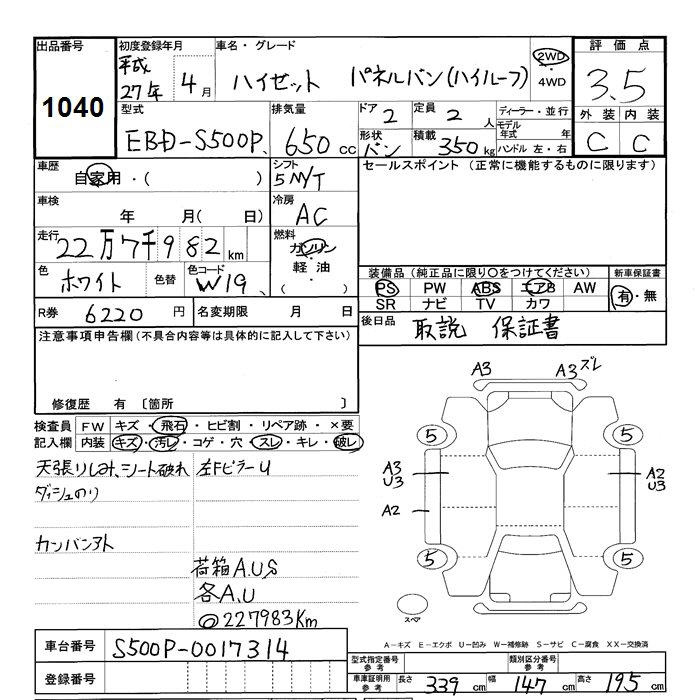 出品番号 初度登録年月 車名・グレード 評価点
1040 平成27年 4月 ハイゼット パネルバン(ハイルーフ) 2WD・4WD 3.5
型式 排気量 ドア 2 定員 2人 ディーラー・並行 外装 内装
EBD-S500P 650cc モデル年式 年 C C
形状 バン 積載 350kg ハンドル 左・右
車歴 シフト セールスポイント (正常に機能するものに限ります)
自家用・( ) 5M/T
車検 冷房
年 月( 日) AC
走行 燃料
22万7千982km ガソリン
色 色替 色コード ・軽油・
ホワイト W19 ( )
装備品(純正品に限り○をつけてください) 新車保証書
PS PW ABS エアB AW 有・無
SR ナビ TV カワ
R券 6220円 名変期限 月 日
後日品 取説 保証書
注意事項申告欄(不具合内容等は具体的に記入して下さい)
修復歴 有 〔箇所 〕
検査員 FW キズ・飛石・ヒビ割・リペア跡・×要
記入欄 内装 キズ・汚レ・コゲ・穴・スレ・キレ・破レ
天張りしみ、シート破れ 左FピラーU
ダッシュのり
カンバンアト
荷箱A.U.S
各A.U
@227983Km
A3 A3ズレ
5 5
A3 U3 A2 U3
A2
5 5
スペア
A-キズ E-エクボ U-凹み W-補修跡 S-サビ C-腐食 XX-交換済
車台番号 S500P-0017314
登録番号
型式指定番号 参考 類別区分番号 参考
車庫証明用 参考 長さ 339cm 幅 147cm 高さ 195cm